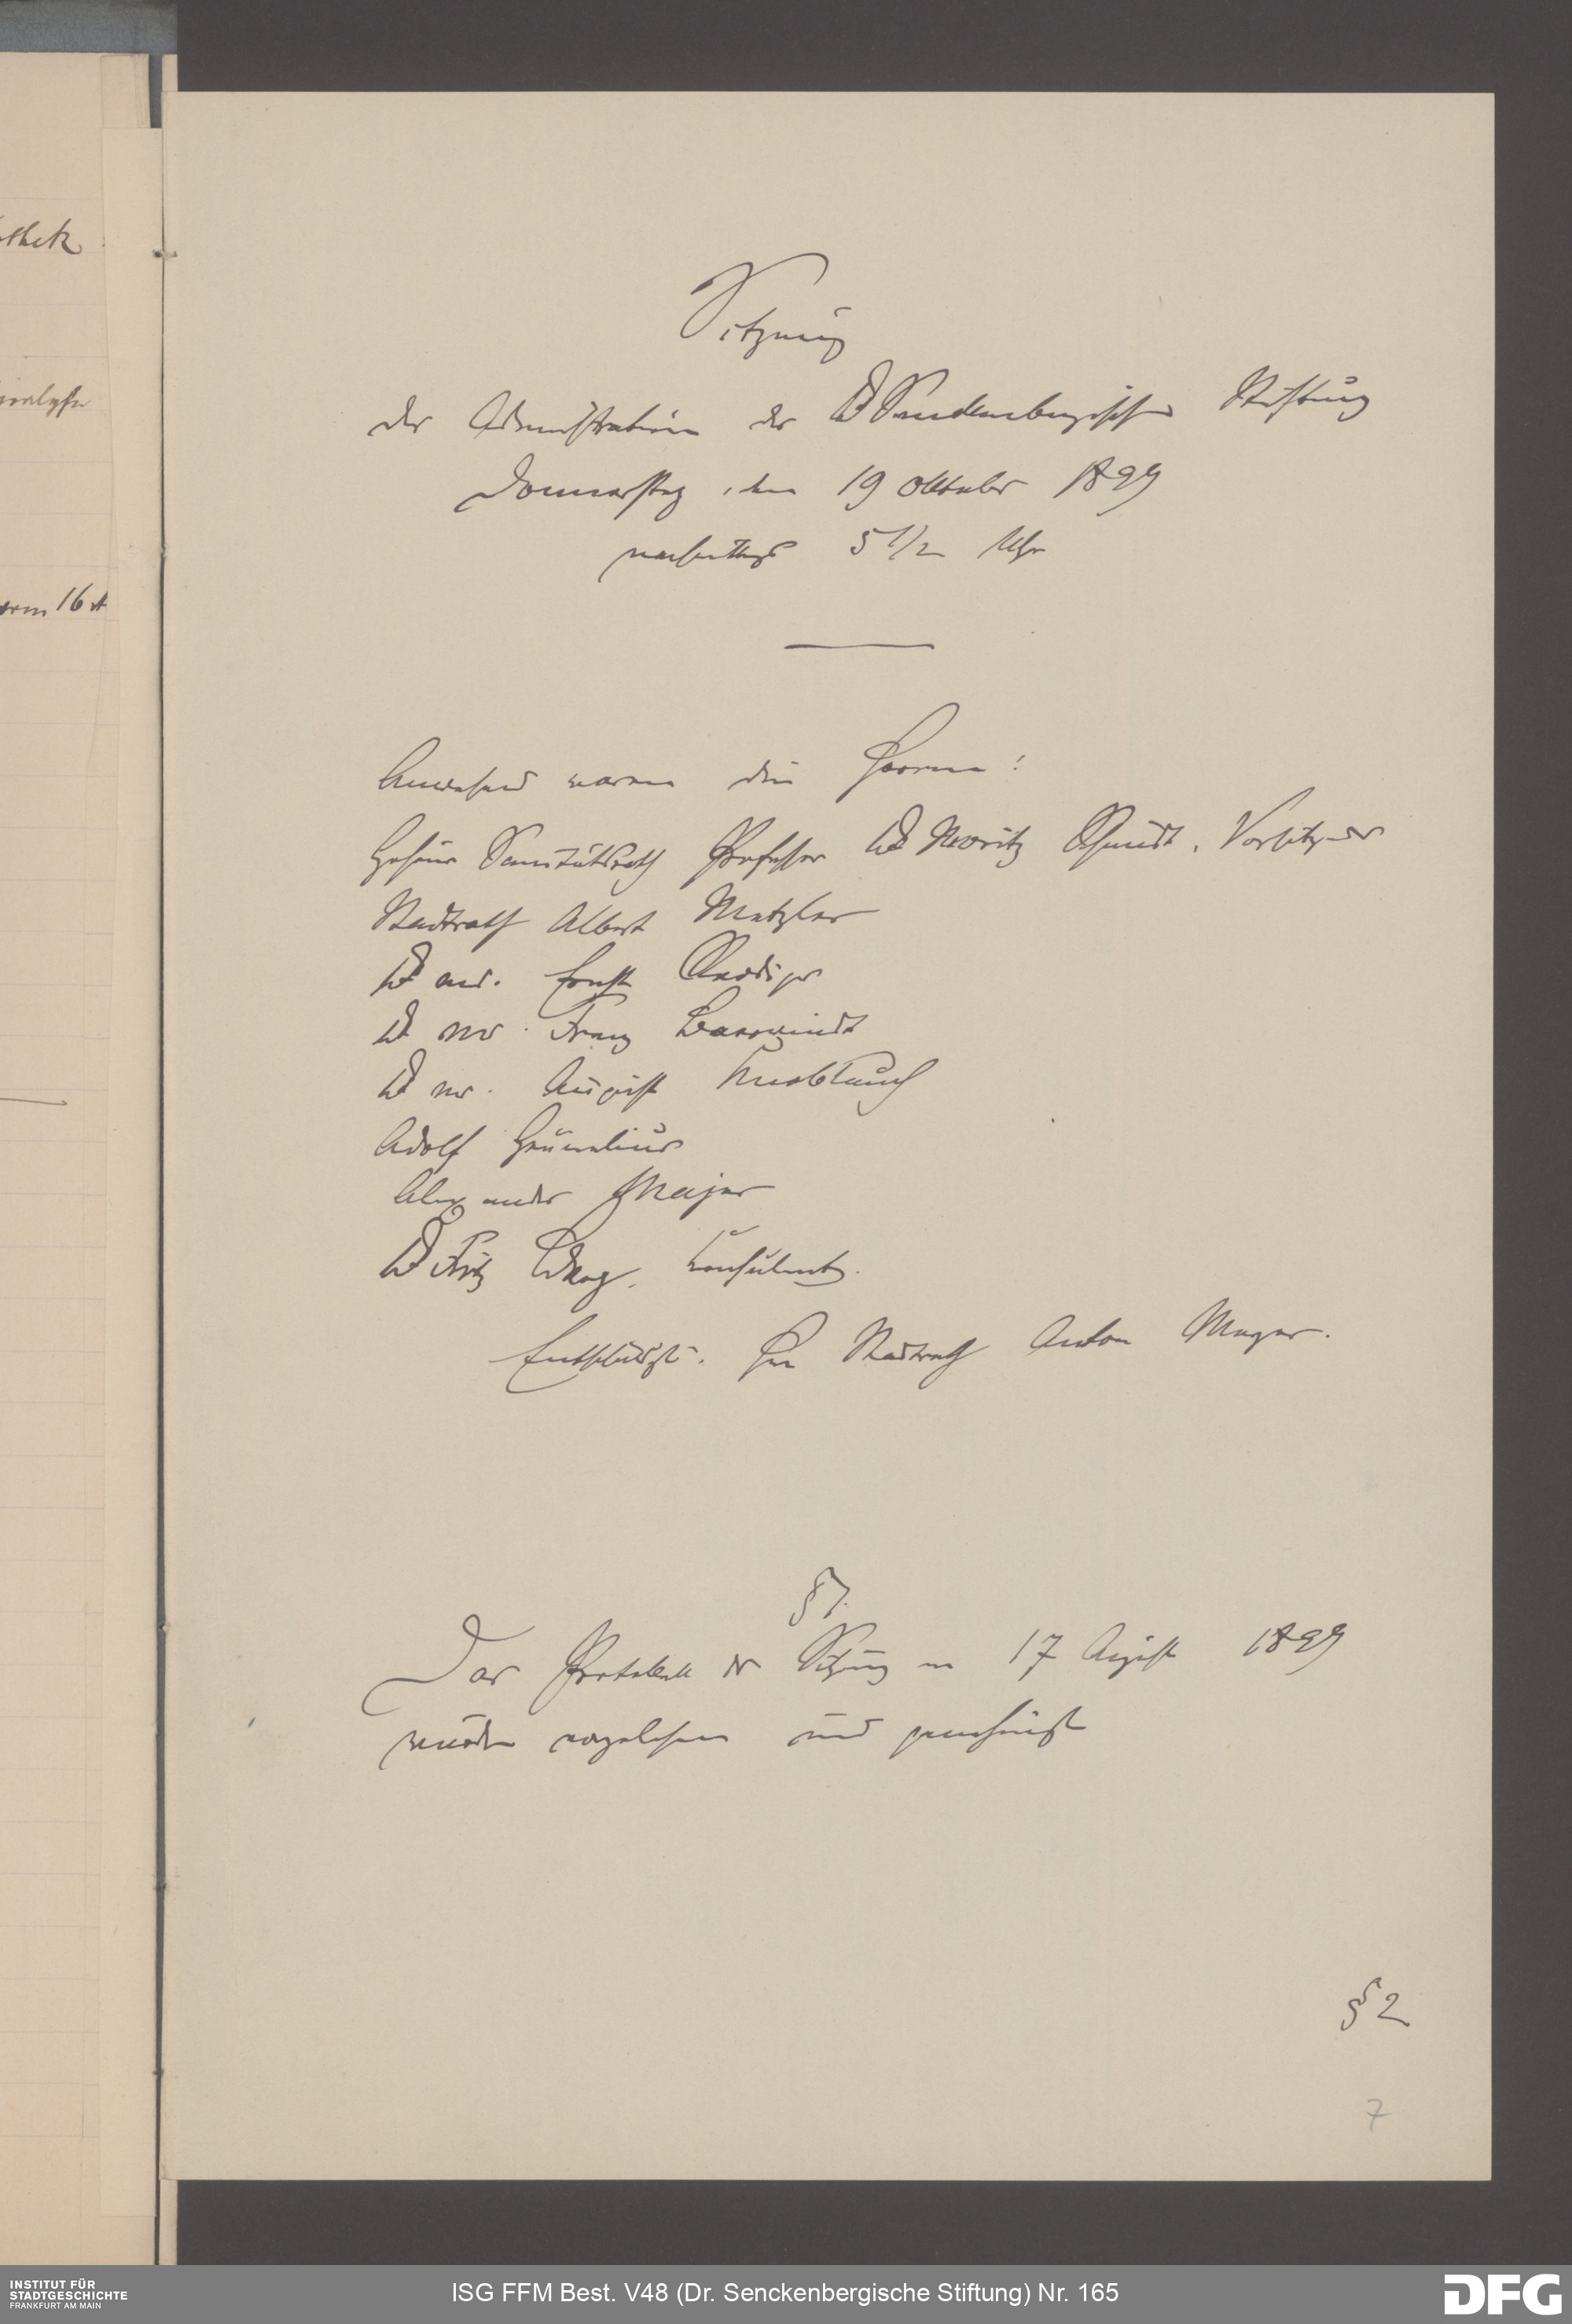 Sitzung
der Administration der Dr Senckenbergischen Stiftung
Donnerstag, den 19 Oktober 1899
nachmittags 5 1/2 Uhr
Anwesend waren die Herren:
Geheimr Sanitätsrath Professor Dr Moritz Schmidt, Vorsitzender
Stadtrath Albert Metzler
Dr med. Ernst Roediger
Dr med. Franz Bärwindt
Dr med. August Knoblauch
Adolf Grunelius
Alexander Majer
Dr Fritz Berg, Consulent.
Entschuldigt: Herr Stadtrath Anton Meyer.
§ 1.
Das Protokoll der Sitzung vom 17 August 1899
wurde vorgelesen und genehmigt
§ 2
7
othek
16
INSTITUT FÜR
STADTGESCHICHTE
FRANKFURT AM MAIN
ISG FFM Best. V48 (Dr. Senckenbergische Stiftung) Nr. 165
DFG